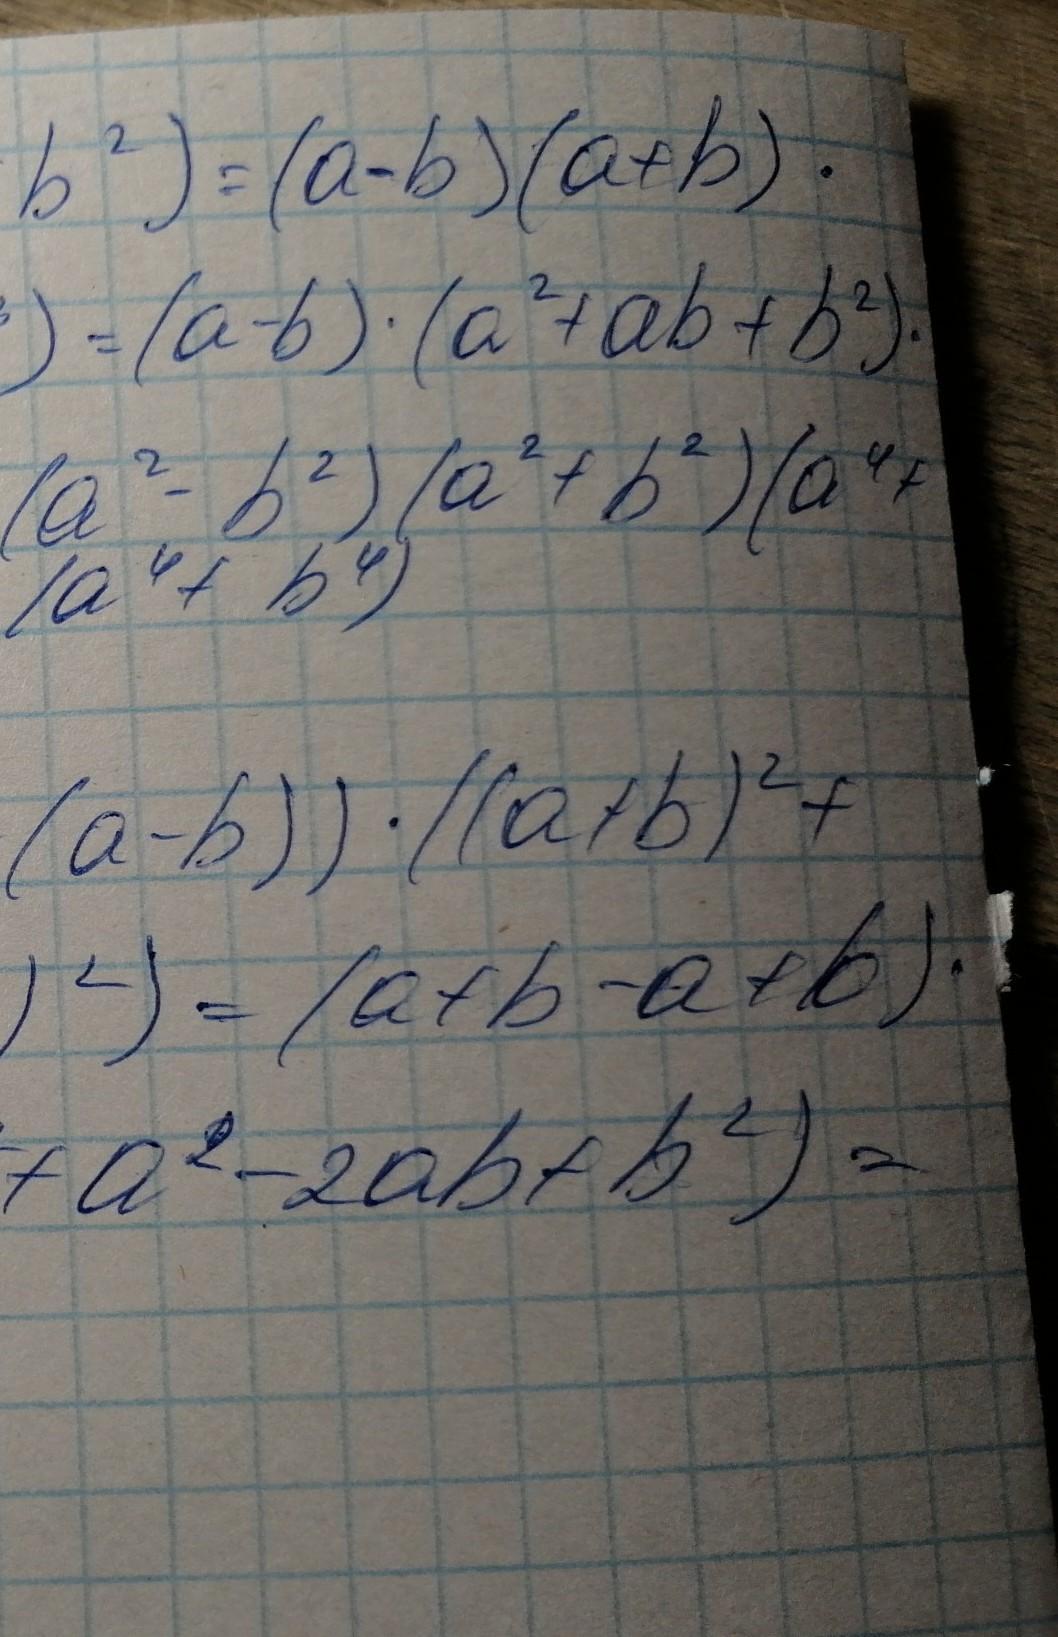 b²) = (a-b)(a+b) ·
) = (a-b) · (a²+ab+b²) ·
(a² - b²)(a² + b²)(a⁴ +
(a⁴ + b⁴)
(a-b)) · ((a+b)² +
)²) = (a+b-a+b) ·
+ a² - 2ab + b²) =